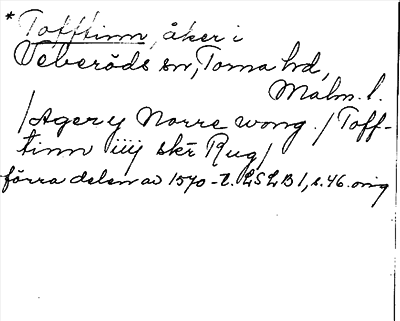 * Tofftinn, åker i
Veberöds sn, Torna hd,
Malm. l.
/Ager y Norre wong./ Toff-
tinn iiij skr Rug/
förra delen av 1570-t. LSLB 1, s. 46. orig